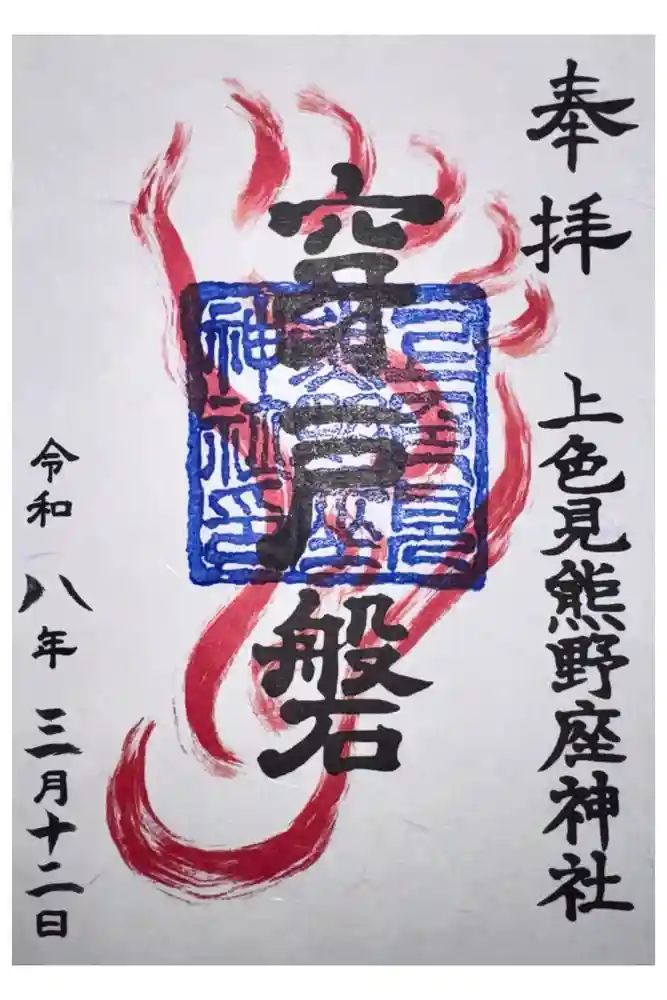 奉拝
上色見熊野座神社
穿戸磐
上色見
熊野座
神社印
令和八年三月十二日